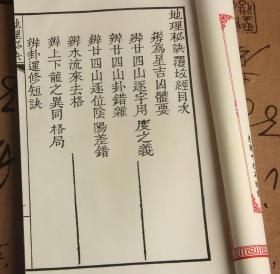 地理秘訣覆坟經目次
辨為星吉凶體要
辨廿四山逐字用度之義
辨廿四山卦錯雜
辨廿四山逐位陰陽差錯
辨水流來去格
辨上下龍之異同格局
辨卦運修短訣
地理秘訣